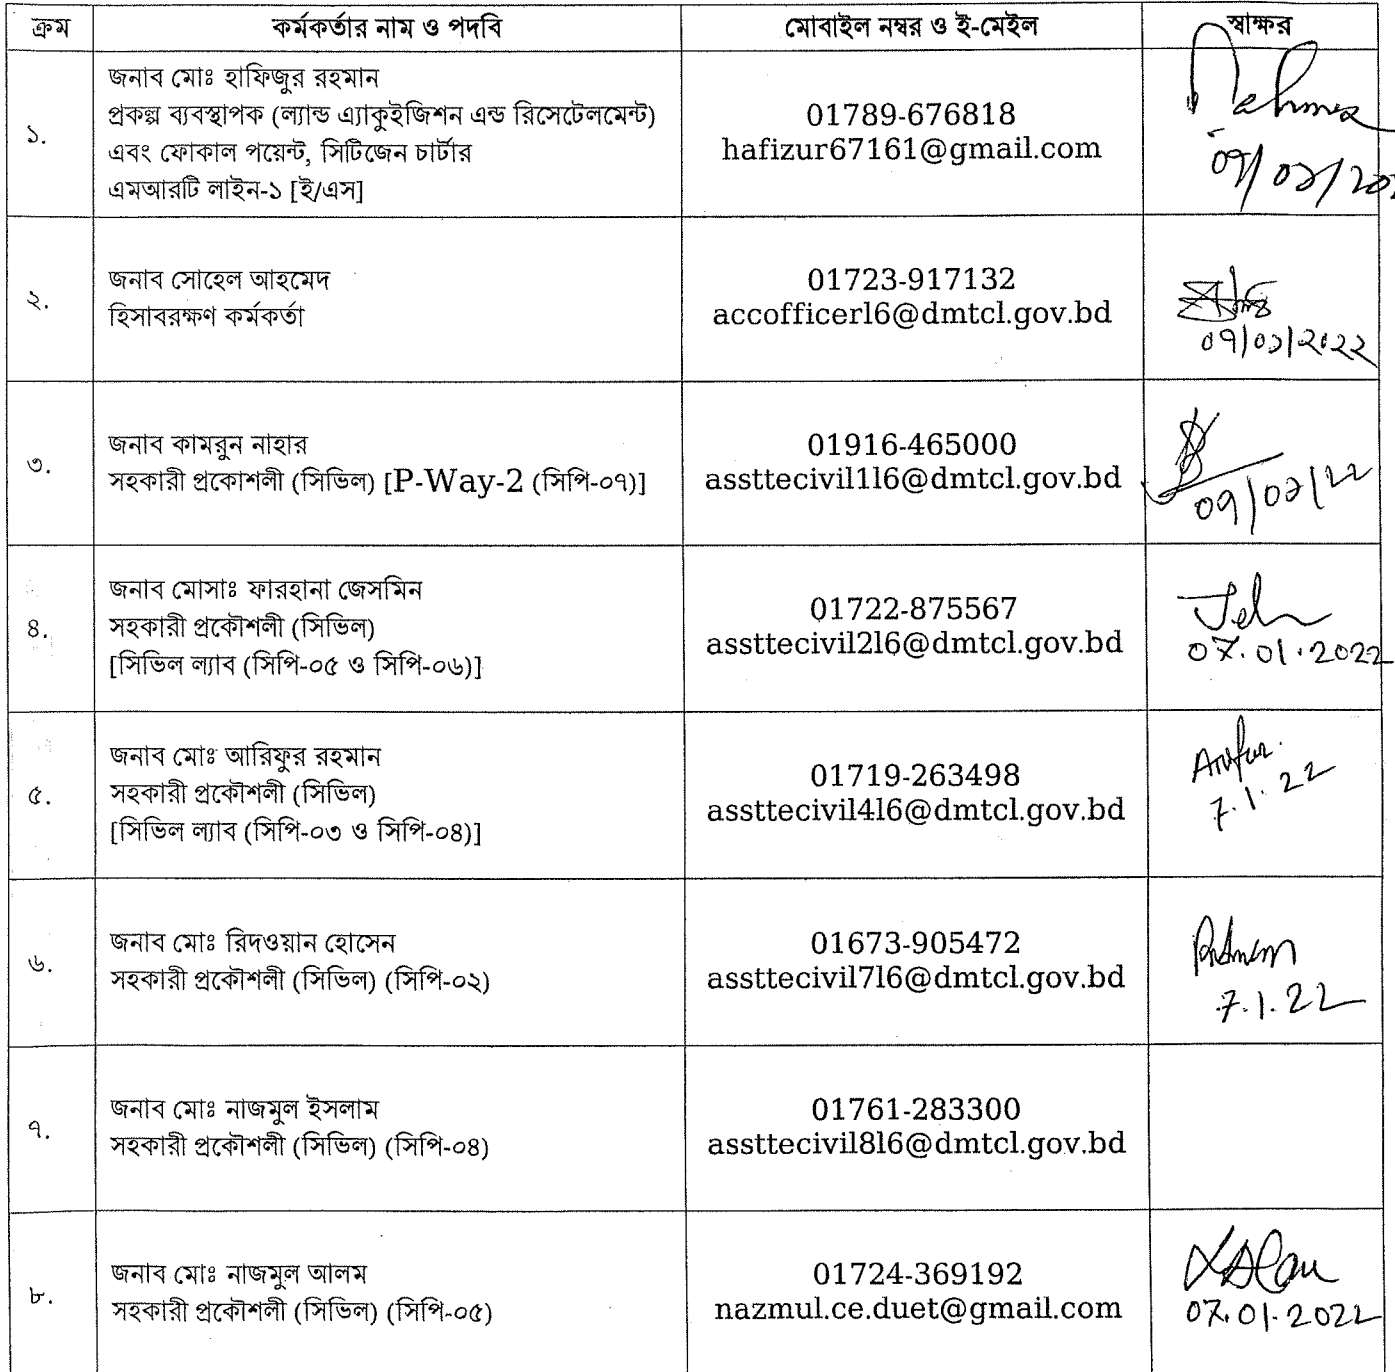 ক্রম কর্মকর্তার নাম ও পদবি মোবাইল নম্বর ও ই-মেইল স্বাক্ষর
জনাব মোঃ হাফিজুর রহমান
প্রকল্প ব্যবস্থাপক (ল্যান্ড এ্যাকুইজিশন এন্ড রিসেটেলমেন্ট)
১. এবং ফোকাল পয়েন্ট, সিটিজেন চার্টার
এমআরটি লাইন-১ [ই/এস]
01789-676818
hafizur67161@gmail.com
০৭/০১/২০২
২.
জনাব সোহেল আহমেদ
হিসাবরক্ষণ কর্মকর্তা
01723-917132
accofficerl6@dmtcl.gov.bd
০৭/০১/২০২২
৩.
জনাব কামরুন নাহার
সহকারী প্রকোশলী (সিভিল) [P-Way-2 (সিপি-০৭)]
01916-465000
assttecivil1l6@dmtcl.gov.bd
০৭/০১/২২
৪.
জনাব মোসাঃ ফারহানা জেসমিন
সহকারী প্রকৌশলী (সিভিল)
[সিভিল ল্যাব (সিপি-০৫ ও সিপি-০৬)]
01722-875567
assttecivil2l6@dmtcl.gov.bd
07.01.2022
৫.
জনাব মোঃ আরিফুর রহমান
সহকারী প্রকৌশলী (সিভিল)
[সিভিল ল্যাব (সিপি-০৩ ও সিপি-০৪)]
01719-263498
assttecivil4l6@dmtcl.gov.bd
7.1.22
৬.
জনাব মোঃ রিদওয়ান হোসেন
সহকারী প্রকৌশলী (সিভিল) (সিপি-০২)
01673-905472
assttecivil7l6@dmtcl.gov.bd
7.1.22
৭.
জনাব মোঃ নাজমুল ইসলাম
সহকারী প্রকৌশলী (সিভিল) (সিপি-০৪)
01761-283300
assttecivil8l6@dmtcl.gov.bd
৮.
জনাব মোঃ নাজমুল আলম
সহকারী প্রকৌশলী (সিভিল) (সিপি-০৫)
01724-369192
nazmul.ce.duet@gmail.com
07.01.2022